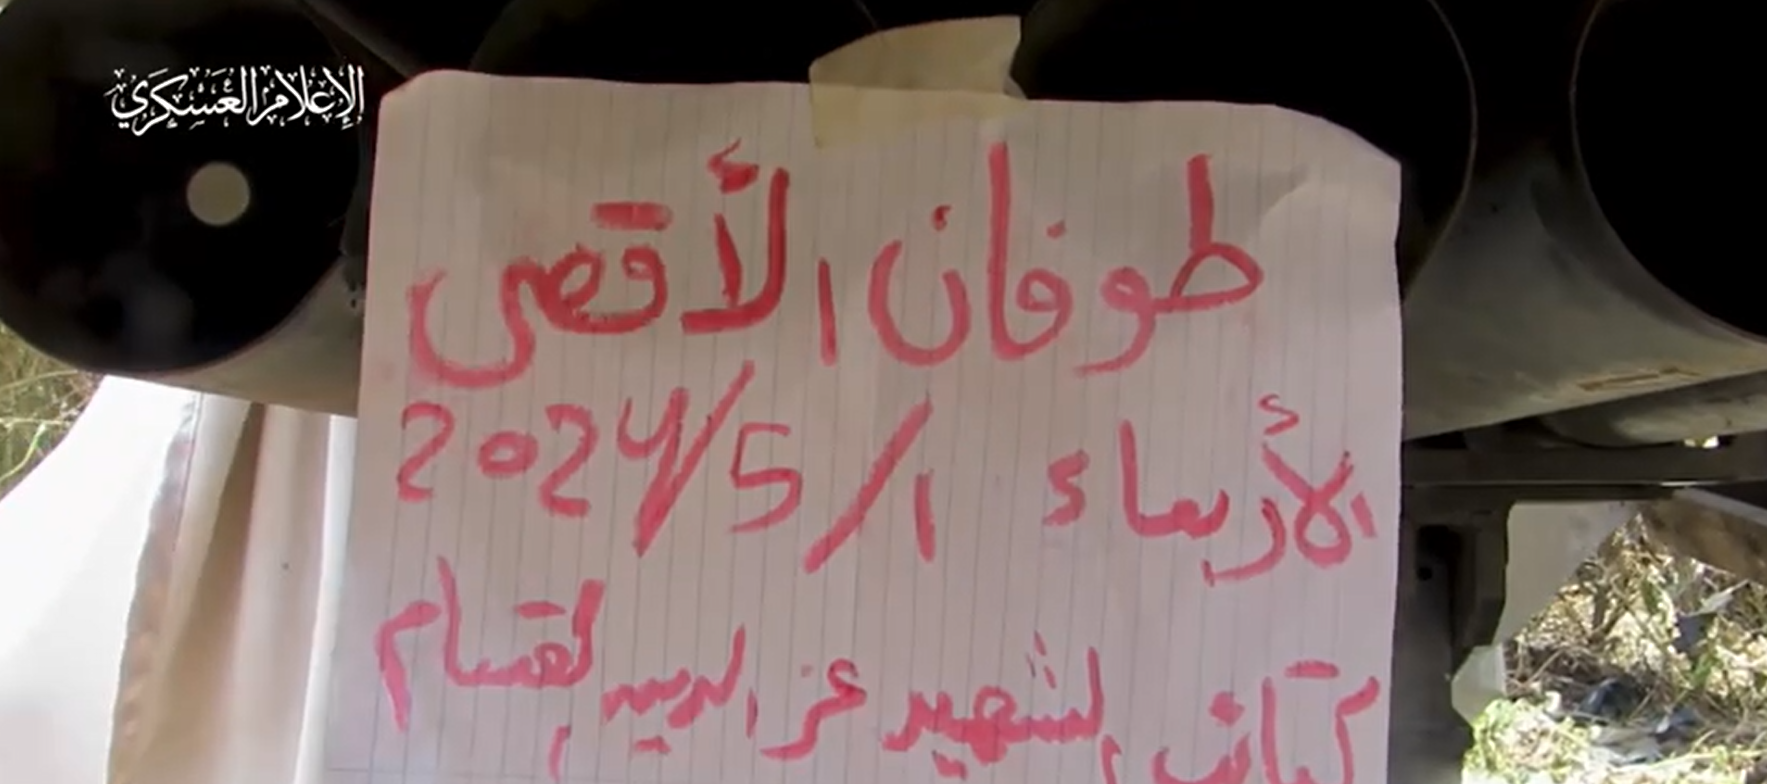 الإعلام العسكري
طوفان الأقصى
الأربعاء 2024/5/1
كتائب الشهيد عز الدين القسام